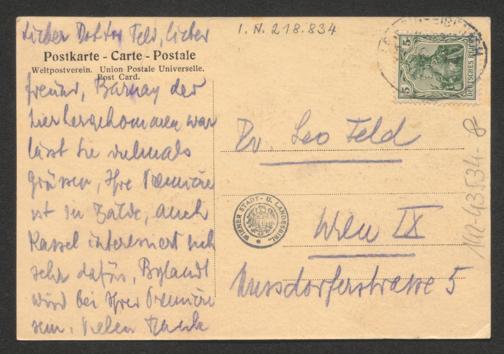 I.N. 218.834
Lieber Doktor Feld, lieber
Postkarte - Carte - Postale
Weltpostverein. Union Postale Universelle.
Post Card.
Freund, Barnay der
hierhergekommen war
lässt Sie vielmals
grüssen, Ihre Première
ist in Bälde, auch
Kassel interessiert sich
sehr dafür, Bylandt
wird bei Ihrer Première
sein. Vielen Dank
5 5
DEUTSCHES REICH
Dr. Leo Feld
WIENER STADT- U. LANDESBIBL.
Wien IX
Nussdorferstrasse 5